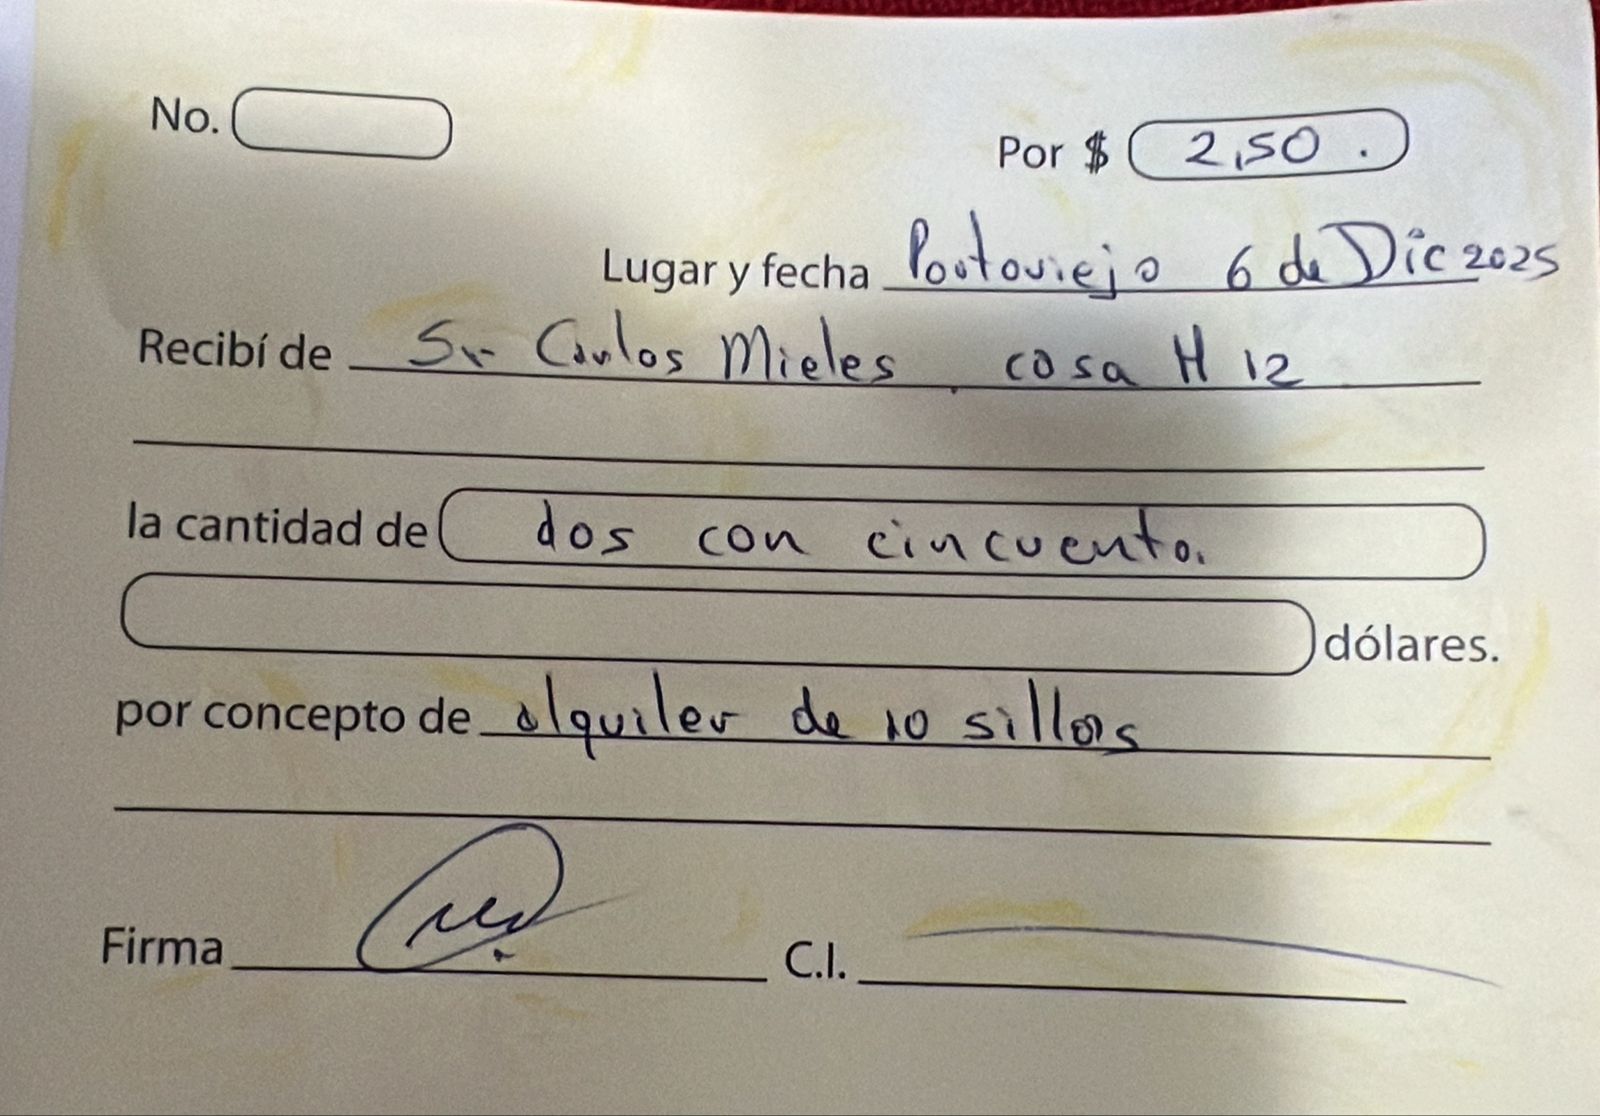 No.
Por $ 2,50.
Lugar y fecha Portoviejo 6 de Dic 2025
Recibí de Sr Carlos Mieles casa H 12
la cantidad de dos con cincuenta.
dólares.
por concepto de alquiler de 10 sillas
Firma C.I.